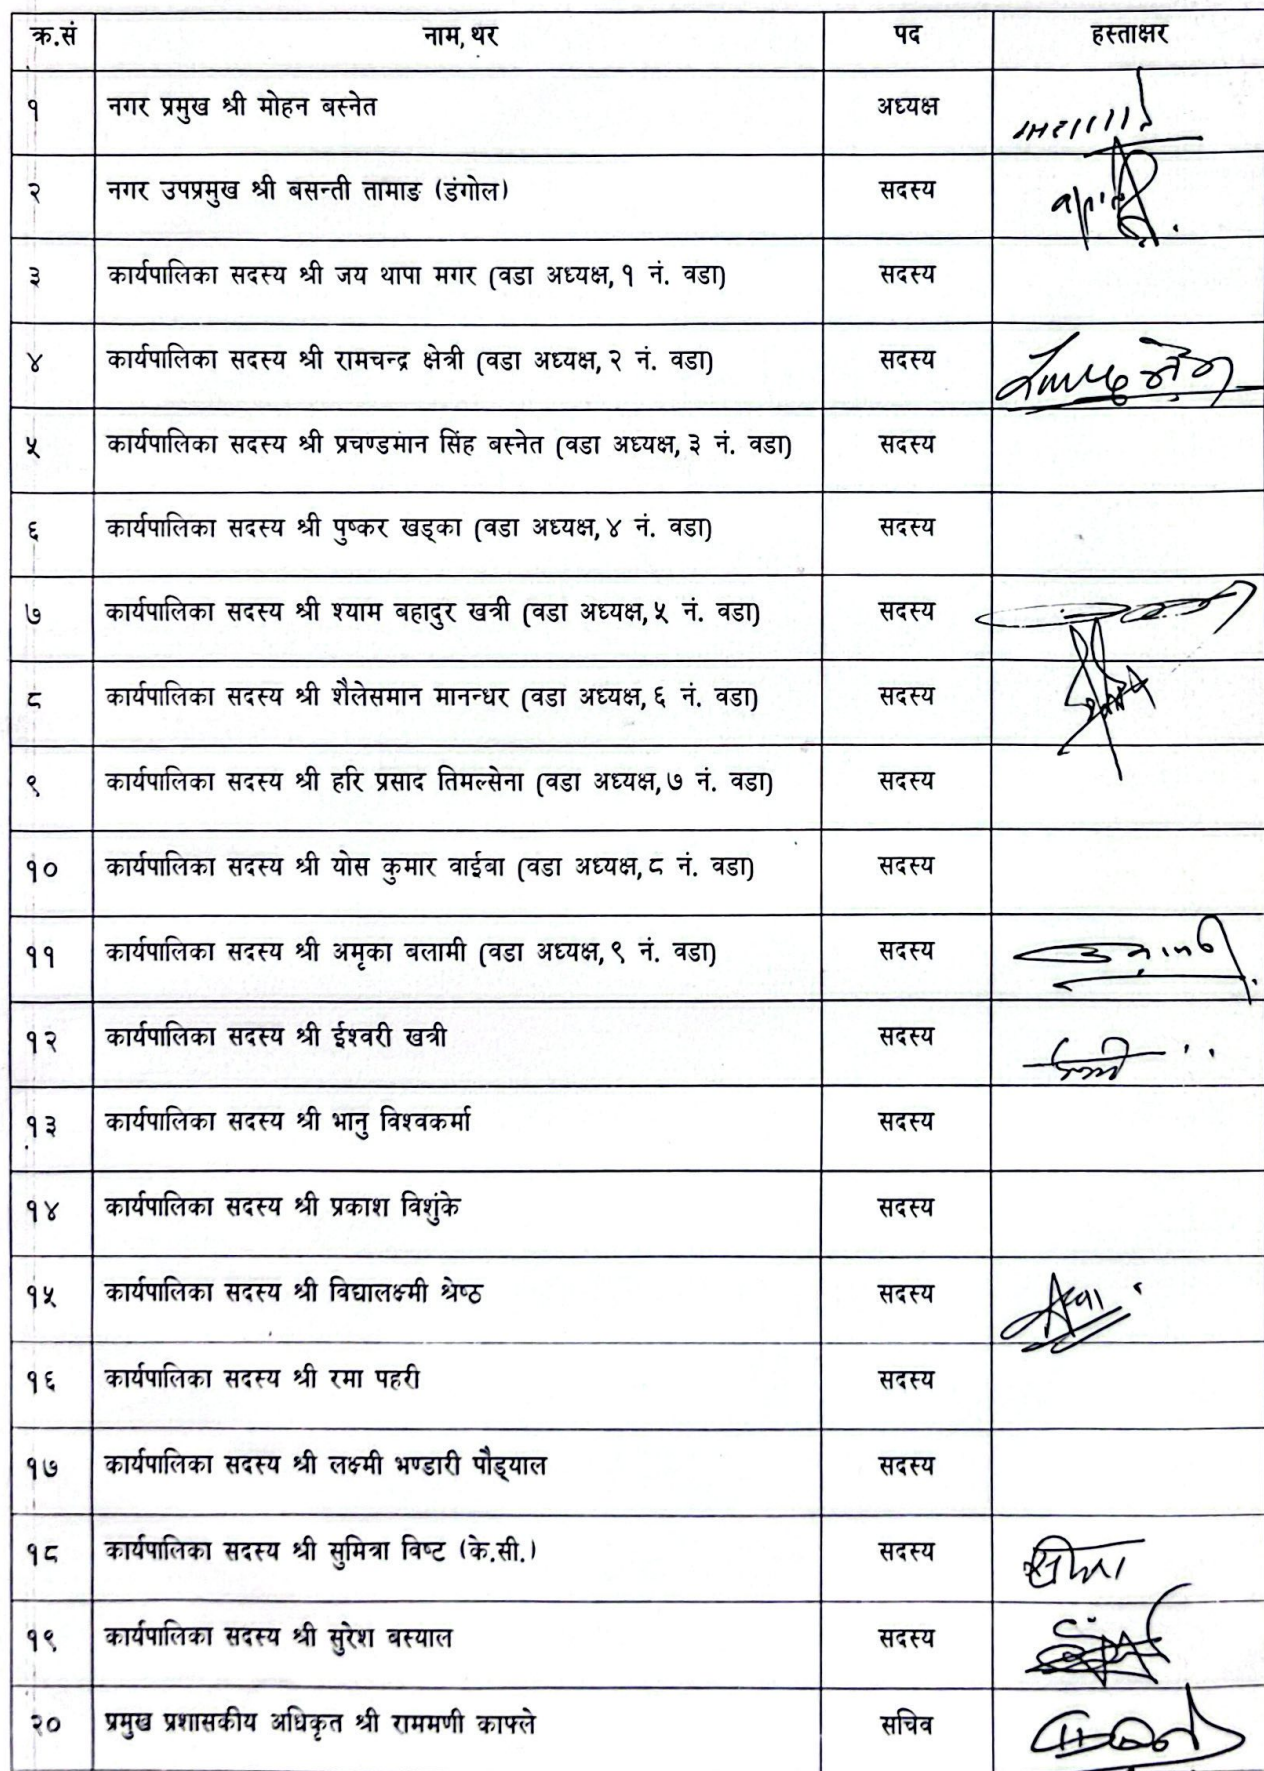 क्र.सं नाम, थर पद हस्ताक्षर
१ नगर प्रमुख श्री मोहन बस्नेत अध्यक्ष
२ नगर उपप्रमुख श्री बसन्ती तामाङ (डंगोल) सदस्य
३ कार्यपालिका सदस्य श्री जय थापा मगर (वडा अध्यक्ष, १ नं. वडा) सदस्य
४ कार्यपालिका सदस्य श्री रामचन्द्र क्षेत्री (वडा अध्यक्ष, २ नं. वडा) सदस्य
५ कार्यपालिका सदस्य श्री प्रचण्डमान सिंह बस्नेत (वडा अध्यक्ष, ३ नं. वडा) सदस्य
६ कार्यपालिका सदस्य श्री पुष्कर खड्का (वडा अध्यक्ष, ४ नं. वडा) सदस्य
७ कार्यपालिका सदस्य श्री श्याम बहादुर खत्री (वडा अध्यक्ष, ५ नं. वडा) सदस्य
८ कार्यपालिका सदस्य श्री शैलेसमान मानन्धर (वडा अध्यक्ष, ६ नं. वडा) सदस्य
९ कार्यपालिका सदस्य श्री हरि प्रसाद तिमल्सेना (वडा अध्यक्ष, ७ नं. वडा) सदस्य
१० कार्यपालिका सदस्य श्री योस कुमार वाईबा (वडा अध्यक्ष, ८ नं. वडा) सदस्य
११ कार्यपालिका सदस्य श्री अमृका बलामी (वडा अध्यक्ष, ९ नं. वडा) सदस्य
१२ कार्यपालिका सदस्य श्री ईश्वरी खत्री सदस्य
१३ कार्यपालिका सदस्य श्री भानु विश्वकर्मा सदस्य
१४ कार्यपालिका सदस्य श्री प्रकाश विशुंके सदस्य
१५ कार्यपालिका सदस्य श्री विद्यालक्ष्मी श्रेष्ठ सदस्य
१६ कार्यपालिका सदस्य श्री रमा पहरी सदस्य
१७ कार्यपालिका सदस्य श्री लक्ष्मी भण्डारी पौड्याल सदस्य
१८ कार्यपालिका सदस्य श्री सुमित्रा विष्ट (के.सी.) सदस्य
१९ कार्यपालिका सदस्य श्री सुरेश बस्याल सदस्य
२० प्रमुख प्रशासकीय अधिकृत श्री राममणी काफ्ले सचिव